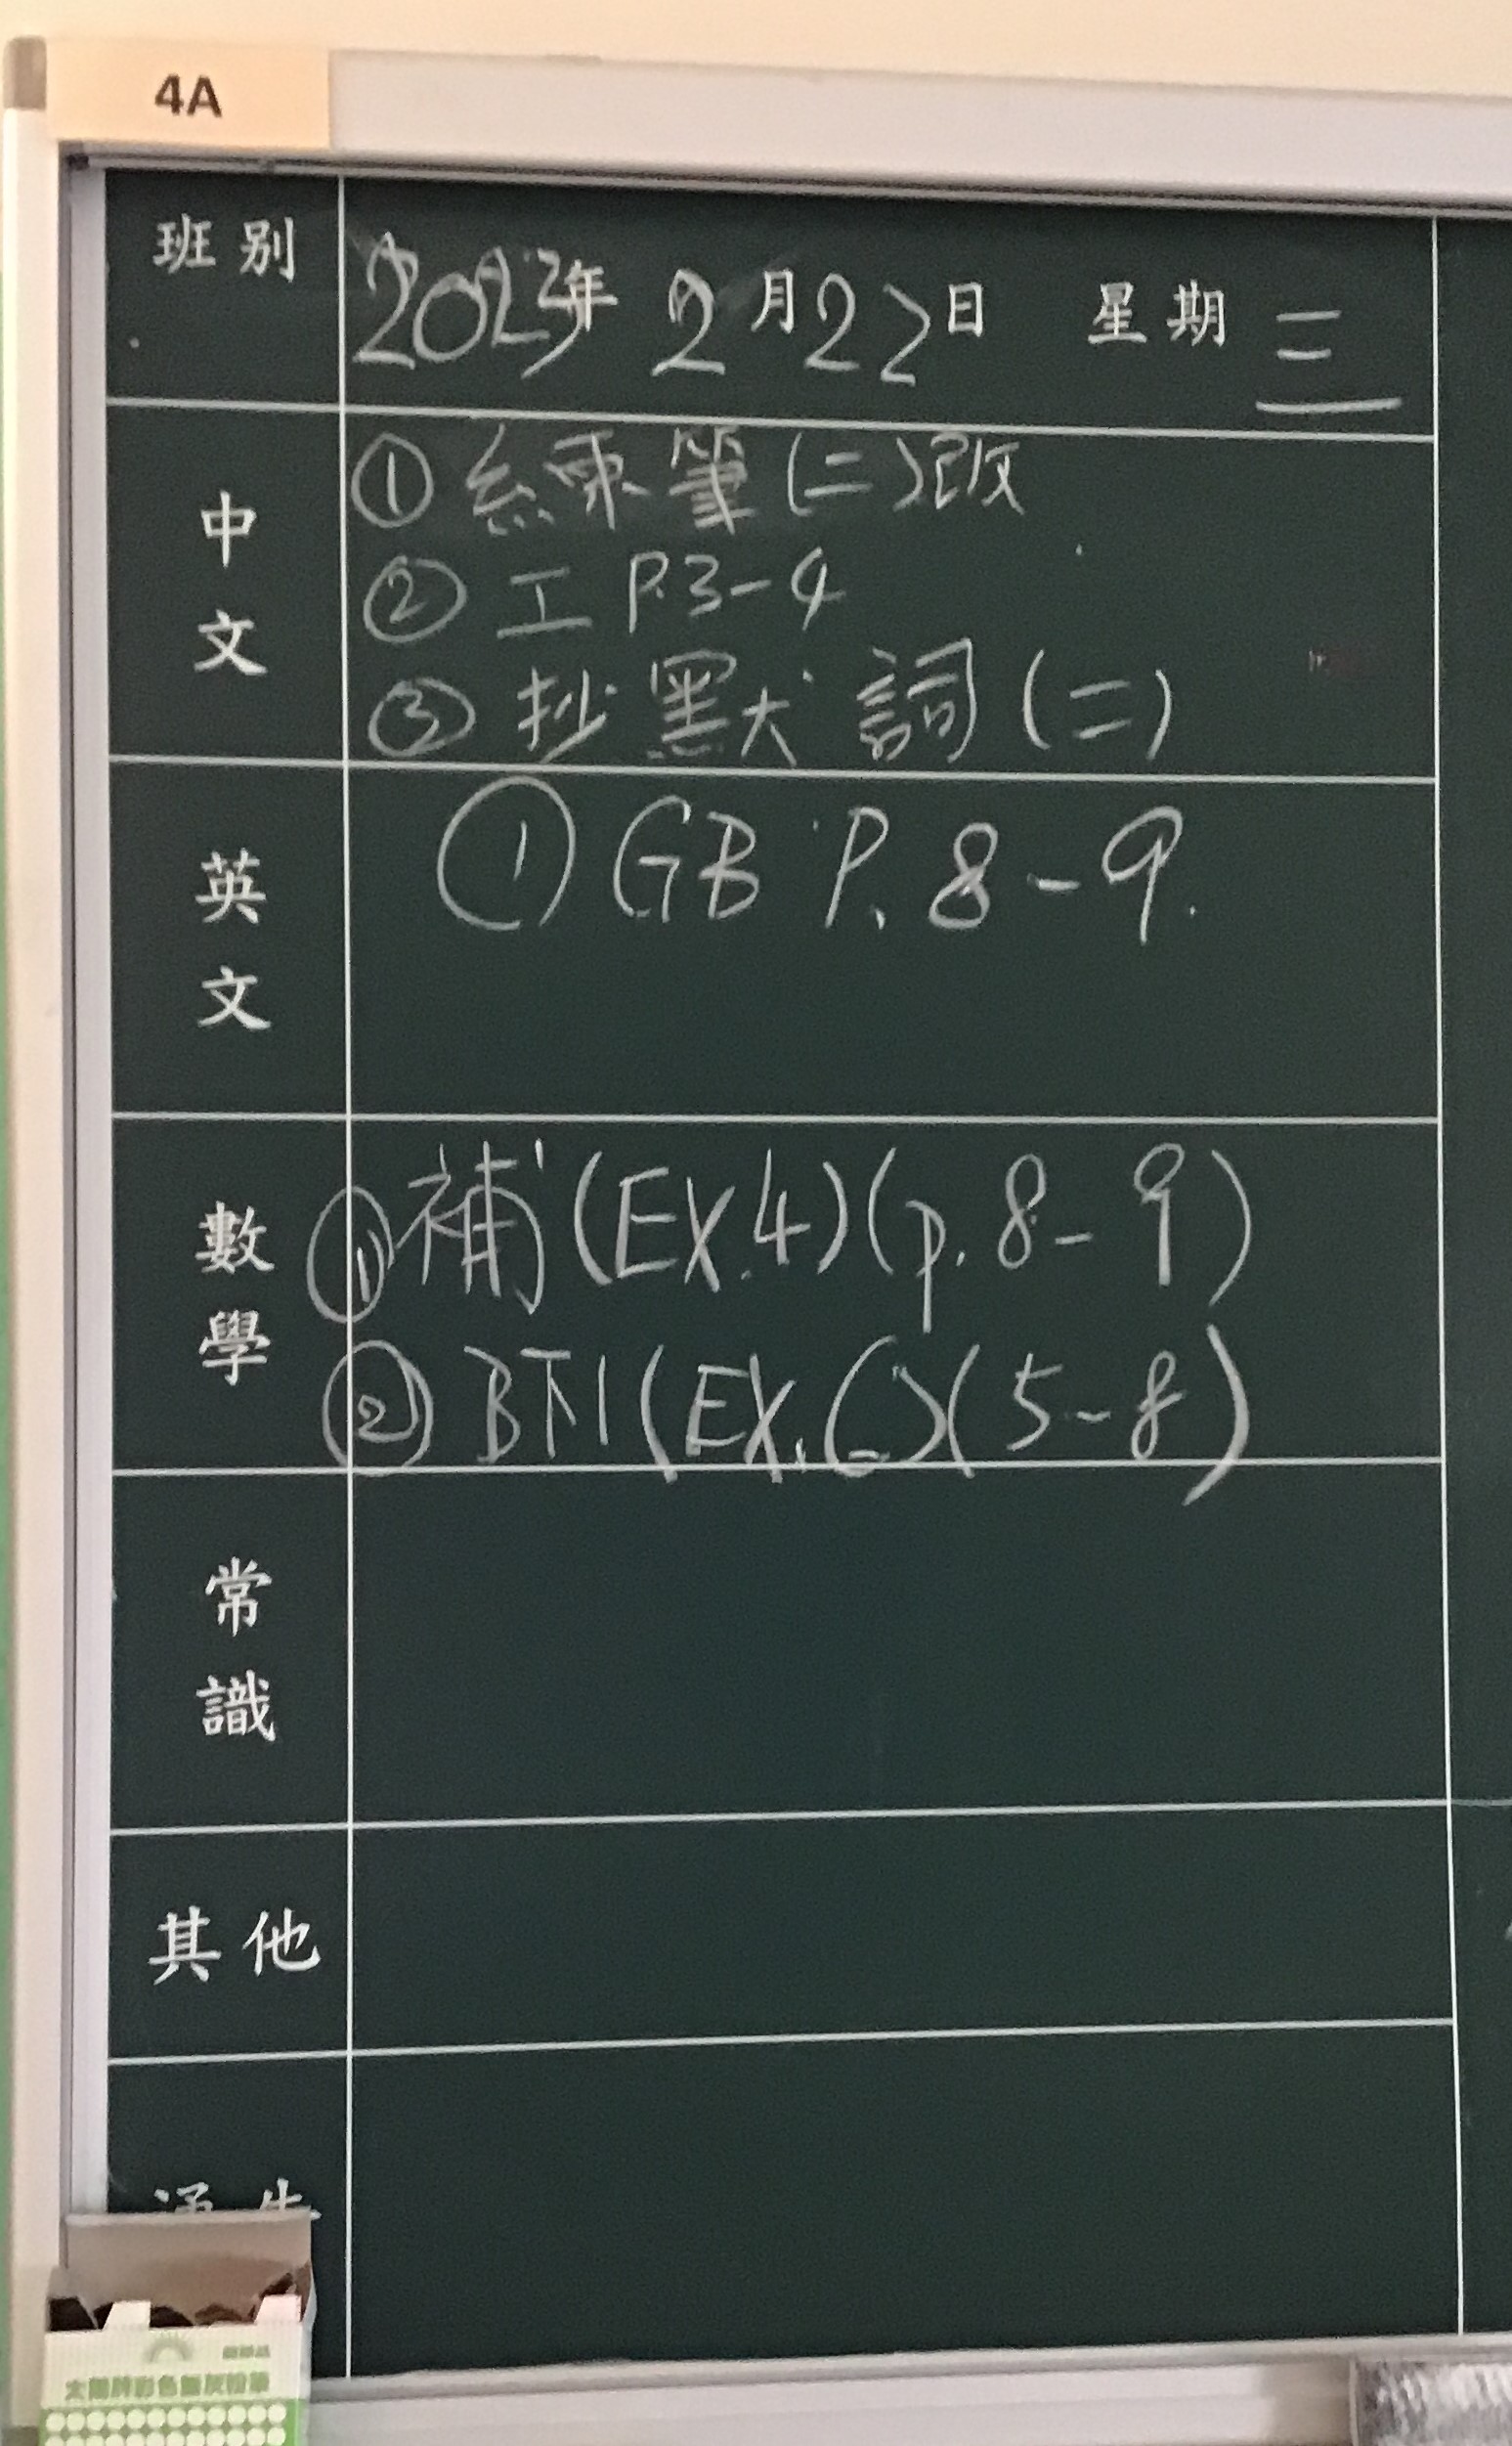 4A
班別
2023年 2月22日 星期三
中文
① 練筆(二)改
② 工 P.3-4
③ 抄默詞(二)
英文
① GB P. 8-9.
數學
① 補(EX.4)(p.8-9)
② B下1(EX. )(5-8)
常識
其他
太陽牌彩色無灰粉筆